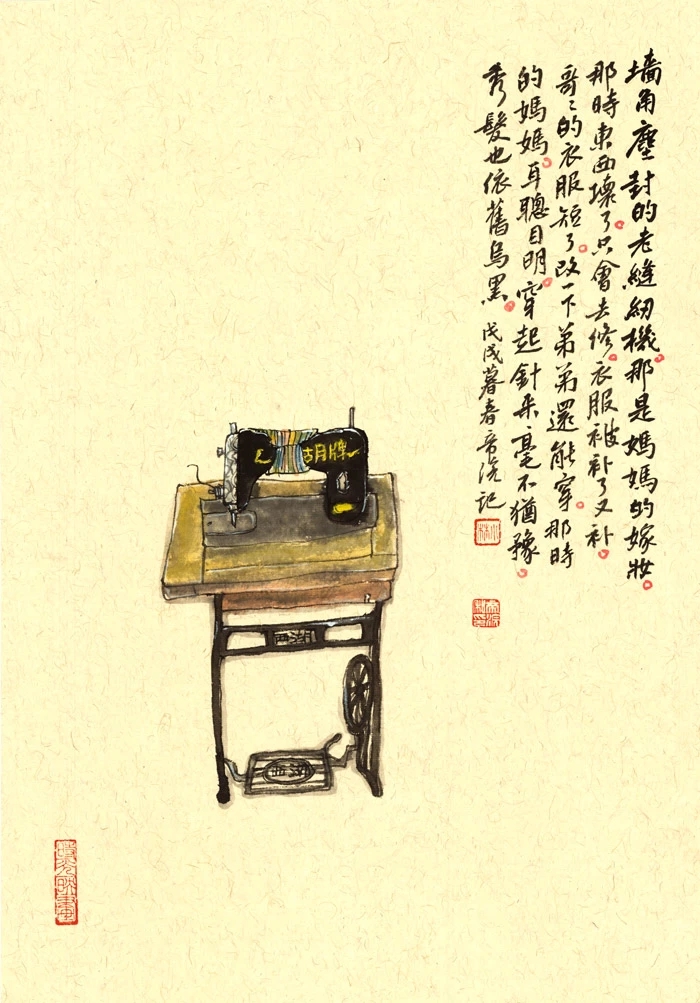 墻角塵封的老縫紉機。那是媽媽的嫁妝。
那時東西壞了。只會去修。衣服被补了又补。
哥〻的衣服短了。改一下弟弟還能穿。那時
的媽媽。耳聰目明。穿起針來毫不猶豫。
秀髮也依舊烏黑。戊戌暮春记
胡牌
西湖
西湖